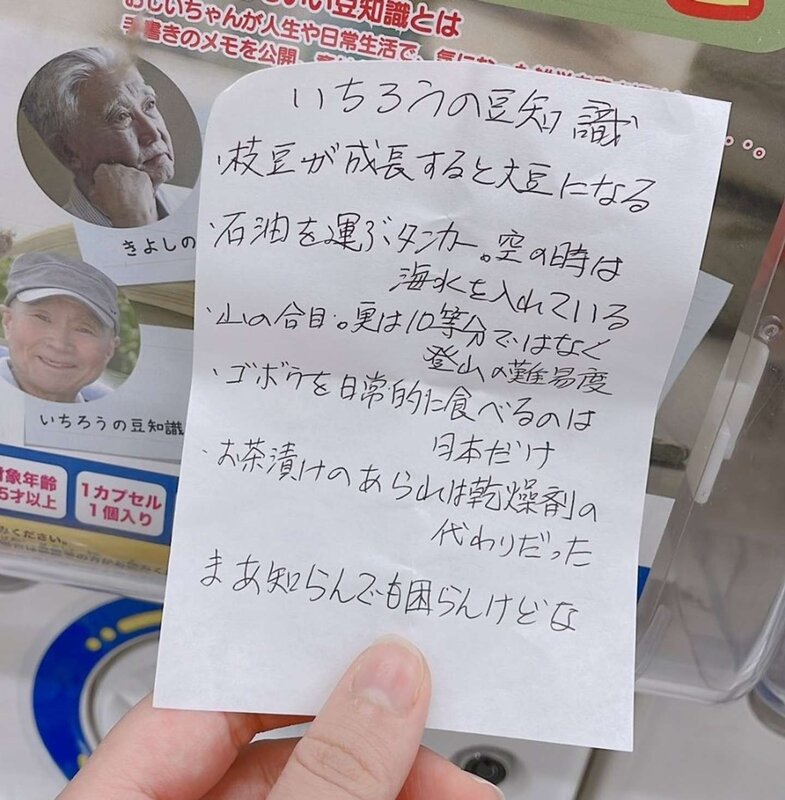 いい豆知識とは
おじいちゃんが人生や日常生活で、気になった
手書きのメモを公開。
いちろうの豆知識
・枝豆が成長すると大豆になる
・石油を運ぶタンカー。空の時は
海水を入れている
・山の合目。実は10等分ではなく
登山の難易度
・ゴボウを日常的に食べるのは
日本だけ
・お茶漬けのあられは乾燥剤の
代わりだった
まあ知らんでも困らんけどな
きよしの
いちろうの豆知識
対象年齢
5才以上
1カプセル
1個入り
ください。